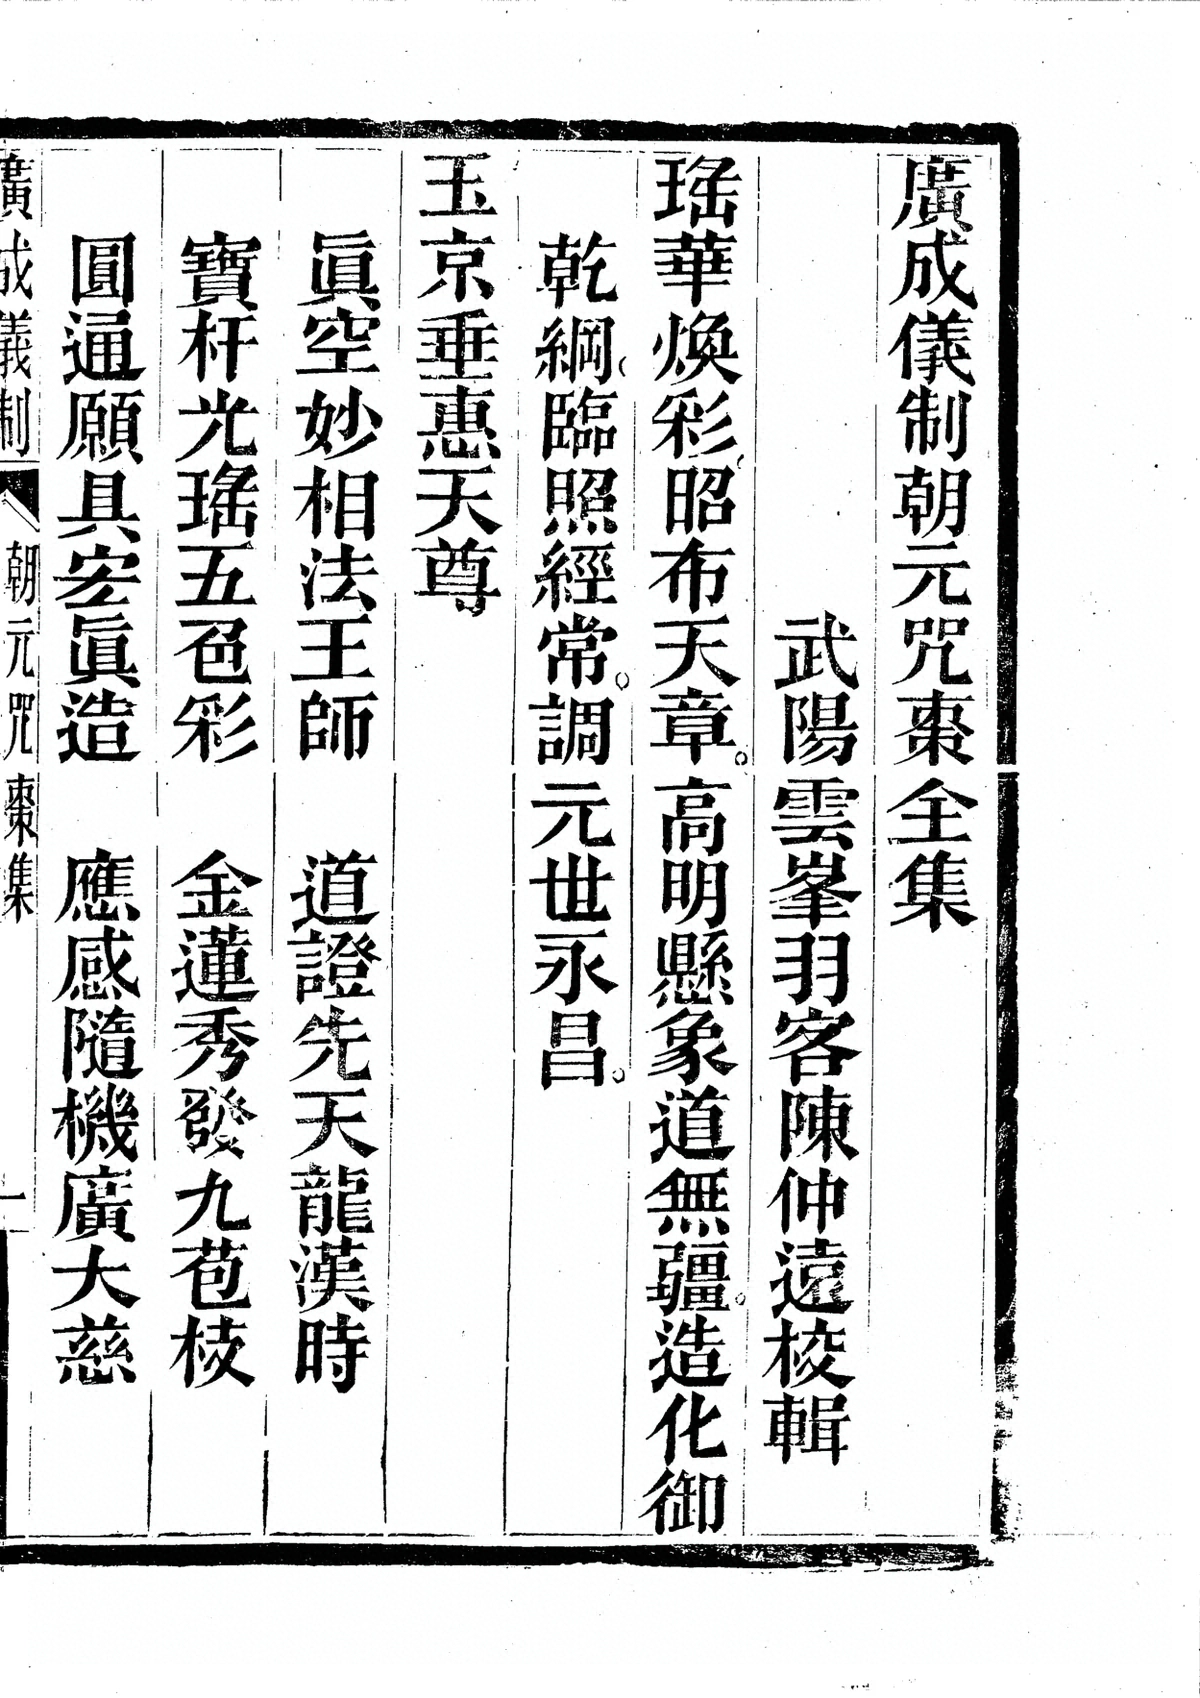 廣成儀制朝元咒棗全集
武陽雲峯羽客陳仲遠校輯
瑤華煥彩。昭布天章。高明懸象道無疆。造化御
乾綱。臨照經常。調元世永昌。
玉京垂惠天尊
眞空妙相法王師　道證先天龍漢時
寶杆光瑤五色彩　金蓮秀發九苞枝
圓通願具宏眞造　應感隨機廣大慈
廣成儀制　朝元咒棗集　一